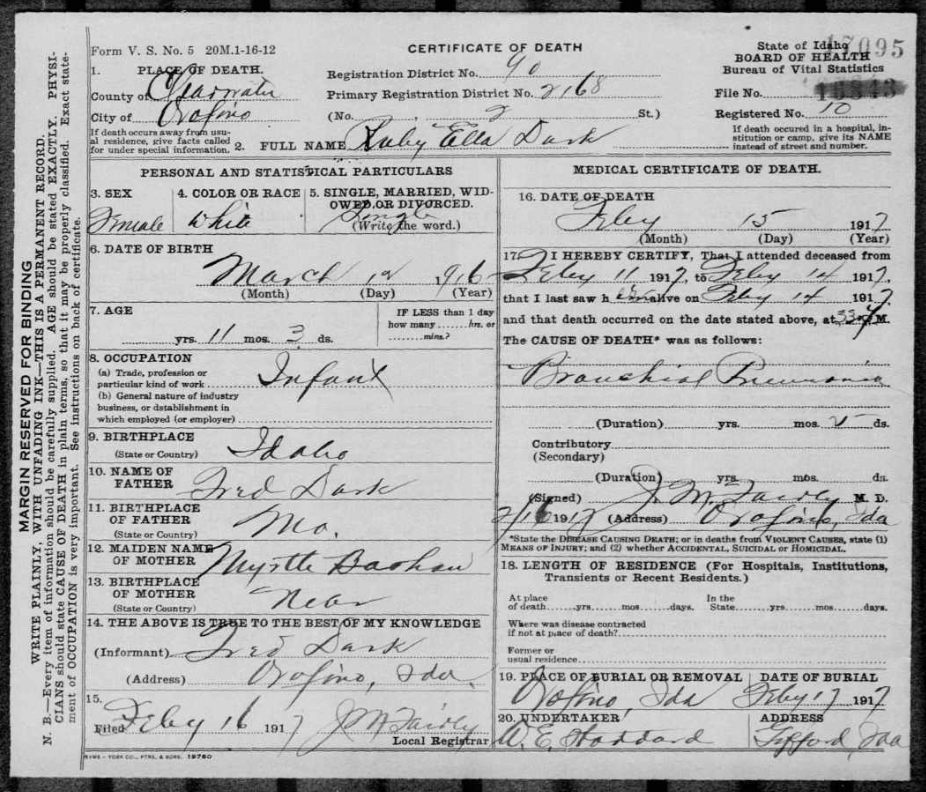 Form V. S. No. 5 20M.1-16-12
CERTIFICATE OF DEATH
State of Idaho
BOARD OF HEALTH
Bureau of Vital Statistics
17095
1. PLACE OF DEATH.
County of Clearwater
City of Orofino
If death occurs away from usual residence, give facts called for under special information.
Registration District No. 90
Primary Registration District No. 2168
(No. 2 St.)
File No. 16843
Registered No. 10
If death occurred in a hospital, institution or camp, give its NAME instead of street and number.
2. FULL NAME Ruby Ella Dark
MARGIN RESERVED FOR BINDING
WRITE PLAINLY, WITH UNFADING INK—THIS IS A PERMANENT RECORD.
N. B.—Every item of information should be carefully supplied. AGE should be stated EXACTLY. PHYSICIANS should state CAUSE OF DEATH in plain terms, so that it may be properly classified. Exact statement of OCCUPATION is very important. See instructions on back of certificate.
PERSONAL AND STATISTICAL PARTICULARS
3. SEX
Female
4. COLOR OR RACE
White
5. SINGLE, MARRIED, WIDOWED, OR DIVORCED.
Single
(Write the word.)
6. DATE OF BIRTH
March 12 1916
(Month) (Day) (Year)
7. AGE
yrs. 11 mos. 3 ds.
IF LESS than 1 day
how many ...... hrs. or
...... mins.?
8. OCCUPATION
(a) Trade, profession or particular kind of work Infant
(b) General nature of industry business, or dstablishment in which employed (or employer)
9. BIRTHPLACE
(State or Country) Idaho
10. NAME OF FATHER Fred Dark
11. BIRTHPLACE OF FATHER
(State or Country) Mo.
12. MAIDEN NAME OF MOTHER Myrtle
13. BIRTHPLACE OF MOTHER
(State or Country)
14. THE ABOVE IS TRUE TO THE BEST OF MY KNOWLEDGE
(Informant) Fred Dark
(Address) Orofino, Ida.
15.
Filed Feby 16 1917 J M Fairly
Local Registrar
SYMS - YORK CO., PTRS. & BDRS. 19760
MEDICAL CERTIFICATE OF DEATH.
16. DATE OF DEATH
Feby 15 1917
(Month) (Day) (Year)
17. I HEREBY CERTIFY, That I attended deceased from
Feby 11 1917, to Feby 14 1917.
that I last saw h er alive on Feby 14 1917
and that death occurred on the date stated above, at M.
The CAUSE OF DEATH* was as follows:
Bronchial Pneumonia
(Duration) yrs. mos. 5 ds.
Contributory
(Secondary)
(Duration) yrs. mos. ds.
(Signed) J. M. Fairly M. D.
2/16 1917 (Address) Orofino, Ida
*State the DISEASE CAUSING DEATH; or in deaths from VIOLENT CAUSES, state (1) MEANS OF INJURY; and (2) whether ACCIDENTAL, SUICIDAL or HOMICIDAL.
18. LENGTH OF RESIDENCE (For Hospitals, Institutions, Transients or Recent Residents.)
At place of death......yrs......mos......days. In the State......yrs......mos......days.
Where was disease contracted if not at place of death?
Former or usual residence
19. PLACE OF BURIAL OR REMOVAL
Orofino, Ida
DATE OF BURIAL
Feby 17 1917
20. UNDERTAKER
W. E. Hoddard
ADDRESS
Ida